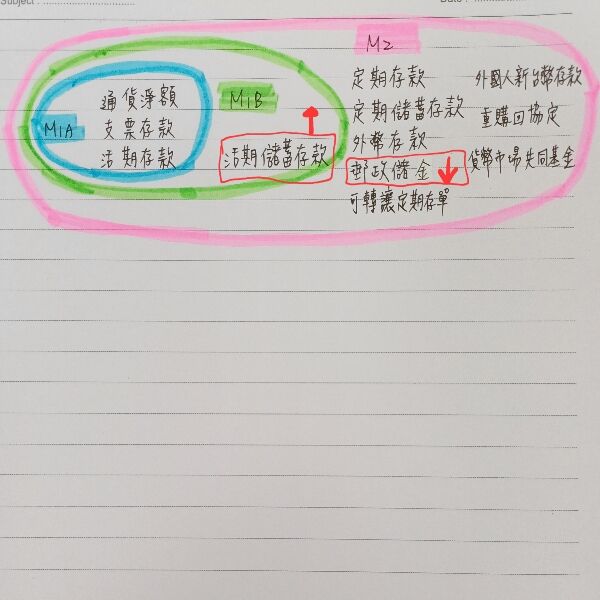 Subject :
Date :
M2
定期存款
外國人新台幣存款
通貨淨額
M1B
定期儲蓄存款
重購回協定
M1A
支票存款
外幣存款
活期存款
活期儲蓄存款
郵政儲金
貨幣市場共同基金
可轉讓定期存單